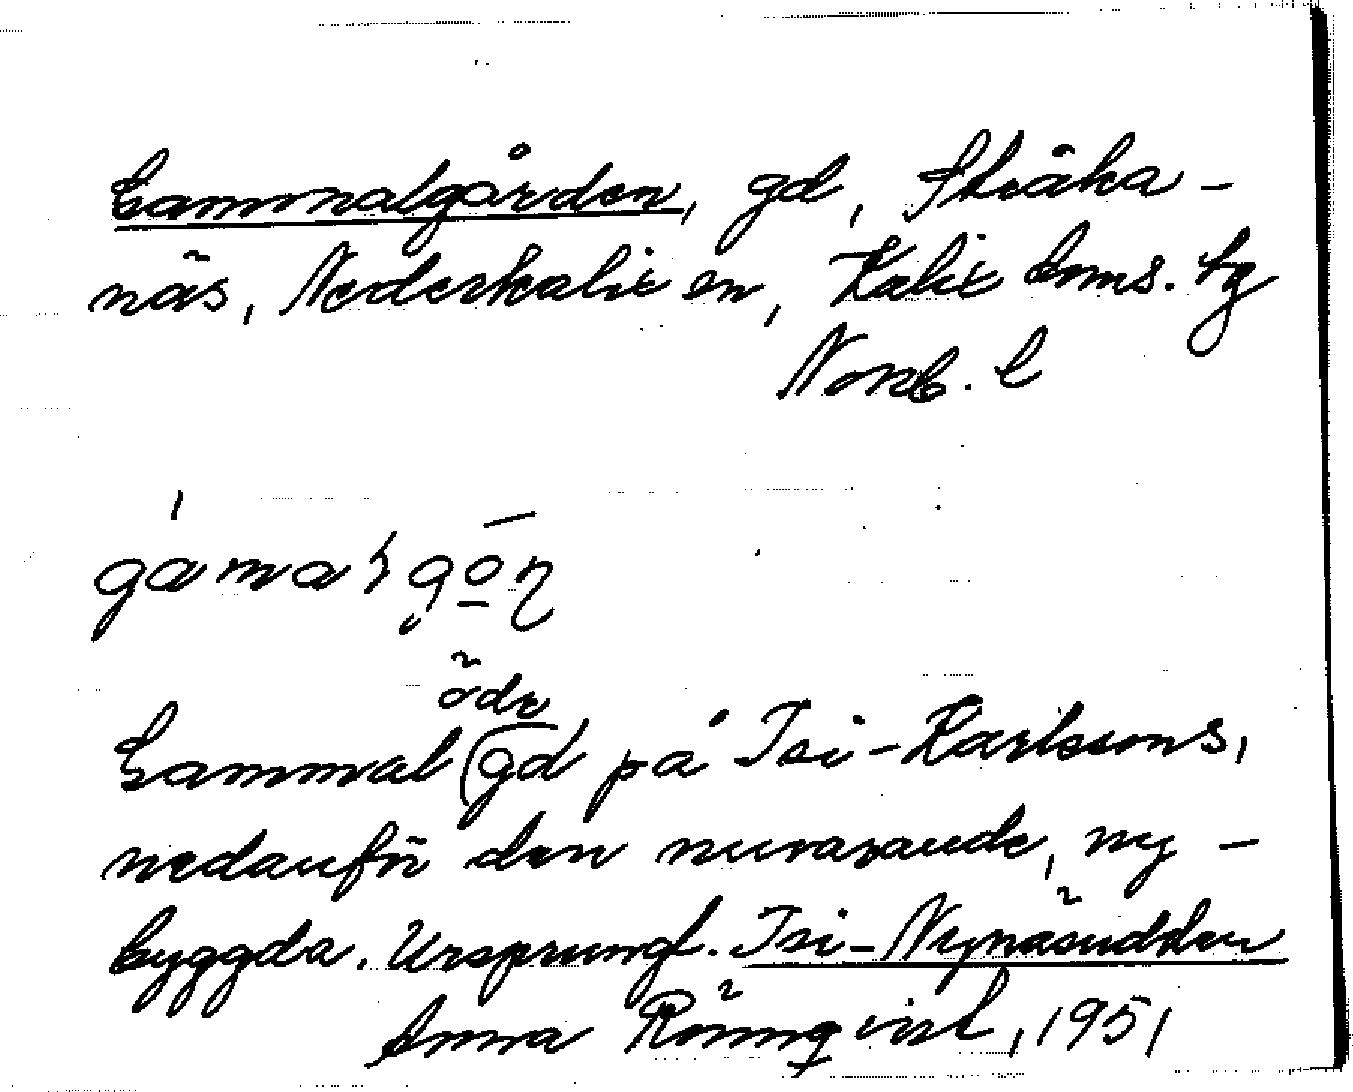 Gammalgården, gd, Stråka-
näs, Nederkalix sn, Kalix doms. tg
Norrb. l
gamaɫgo̱n̥
öde
Gammal gd på Isi-Karlssons,
nedanför den nuvarande, ny-
byggda. Ursprungl. Isi-Nynäsudden
Anna Rönnqvist, 1951